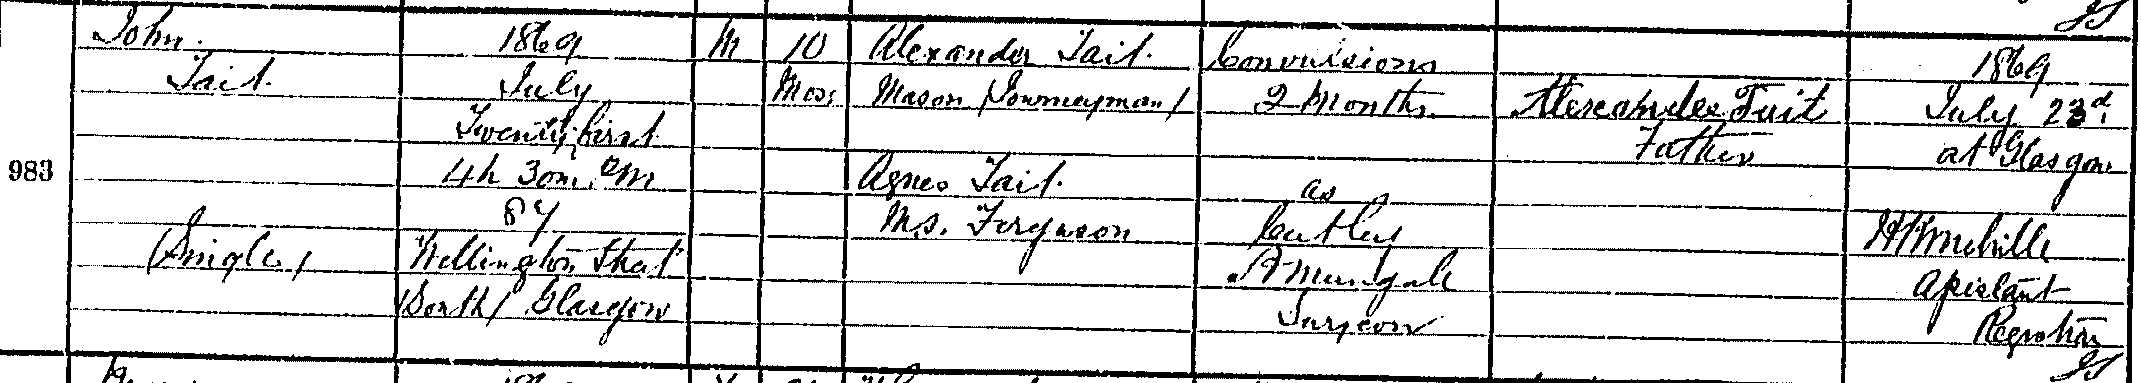 983
John
Tait
(Single)
1869
July
Twenty first
4h 30m
87
Wellington Street
(South) Glasgow
M
10
Mos.
Alexander Tait.
Mason (Journeyman)
Agnes Tait.
M.S. Ferguson
Convulsions
2 Months.
as
Cert by
Surgeon
Alexander Tait
Father
1869
July 23d.
at Glasgow
Assistant
Registrar
JS